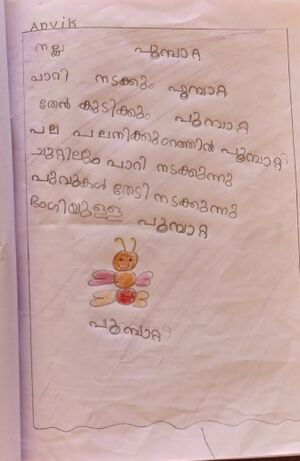 ADVIK
നല്ല പൂമ്പാറ്റ
പാറി നടക്കും പൂമ്പാറ്റ
തേൻ കുടിക്കും പൂമ്പാറ്റ
പല പല നിറത്തിൽ പൂമ്പാറ്റ
ചുറ്റിലും പാറി നടക്കുന്നു
പൂവുകൾ തേടി നടക്കുന്നു
ഭംഗിയുള്ള പൂമ്പാറ്റ
പൂമ്പാറ്റ